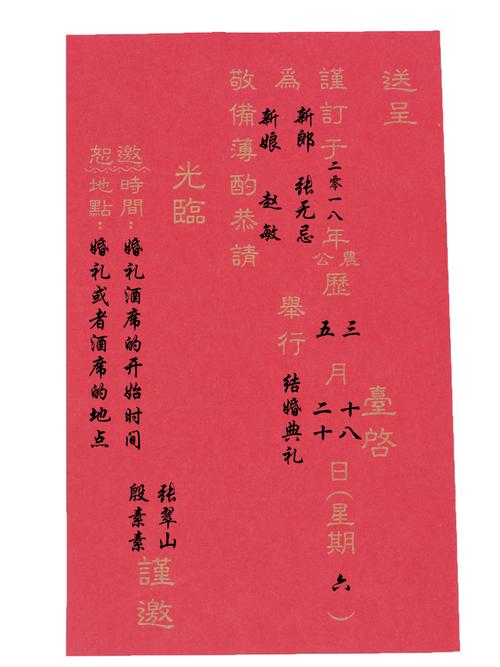 送呈 臺啓
謹訂于二零一八年農公歷三五月十八二十日(星期六)
爲新郎 张无忌
新娘 赵敏
舉行结婚典礼
敬備薄酌恭請
光臨
邀時間：婚礼酒席的开始时间
恕地點：婚礼或者酒席的地点
张翠山
殷素素
謹邀